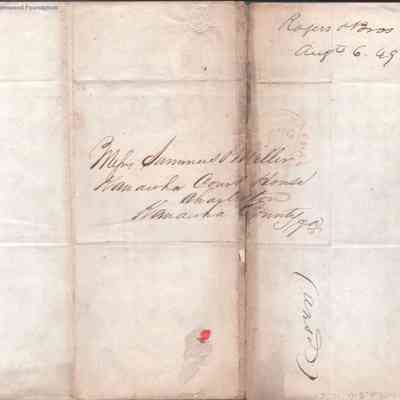 Rogers & Bros
Augt 6. 49
Messrs Summers & Miller
Kanawha Court House
Charleston
Kanawha County
Va
(ansd)